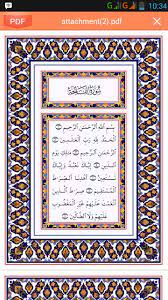 10:34
PDF
attachment(2).pdf
سورة الفاتحة
بسم الله الرحمن الرحيم
الحمد لله رب العالمين
الرحمن الرحيم ملك يوم
الدين إياك نعبد وإياك
نستعين اهدنا الصراط
المستقيم صراط الذين
أنعمت عليهم غير المغضوب
عليهم ولا الضالين